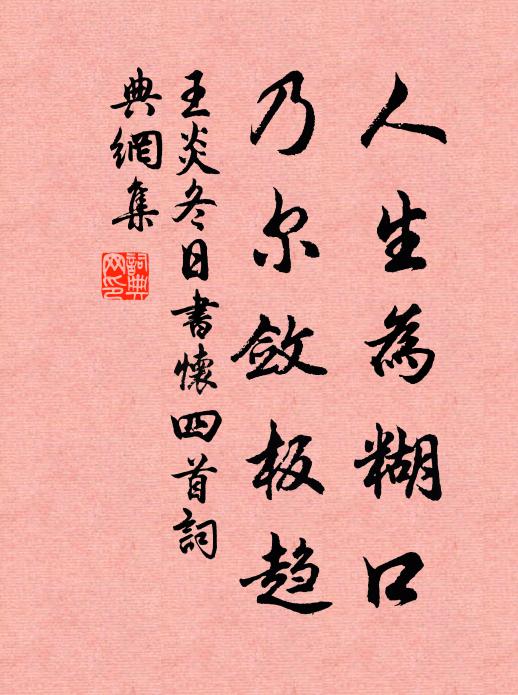 人生為糊口
乃尔斂板趋
王炎冬日書懷四首詞
典網集
詞典
网印